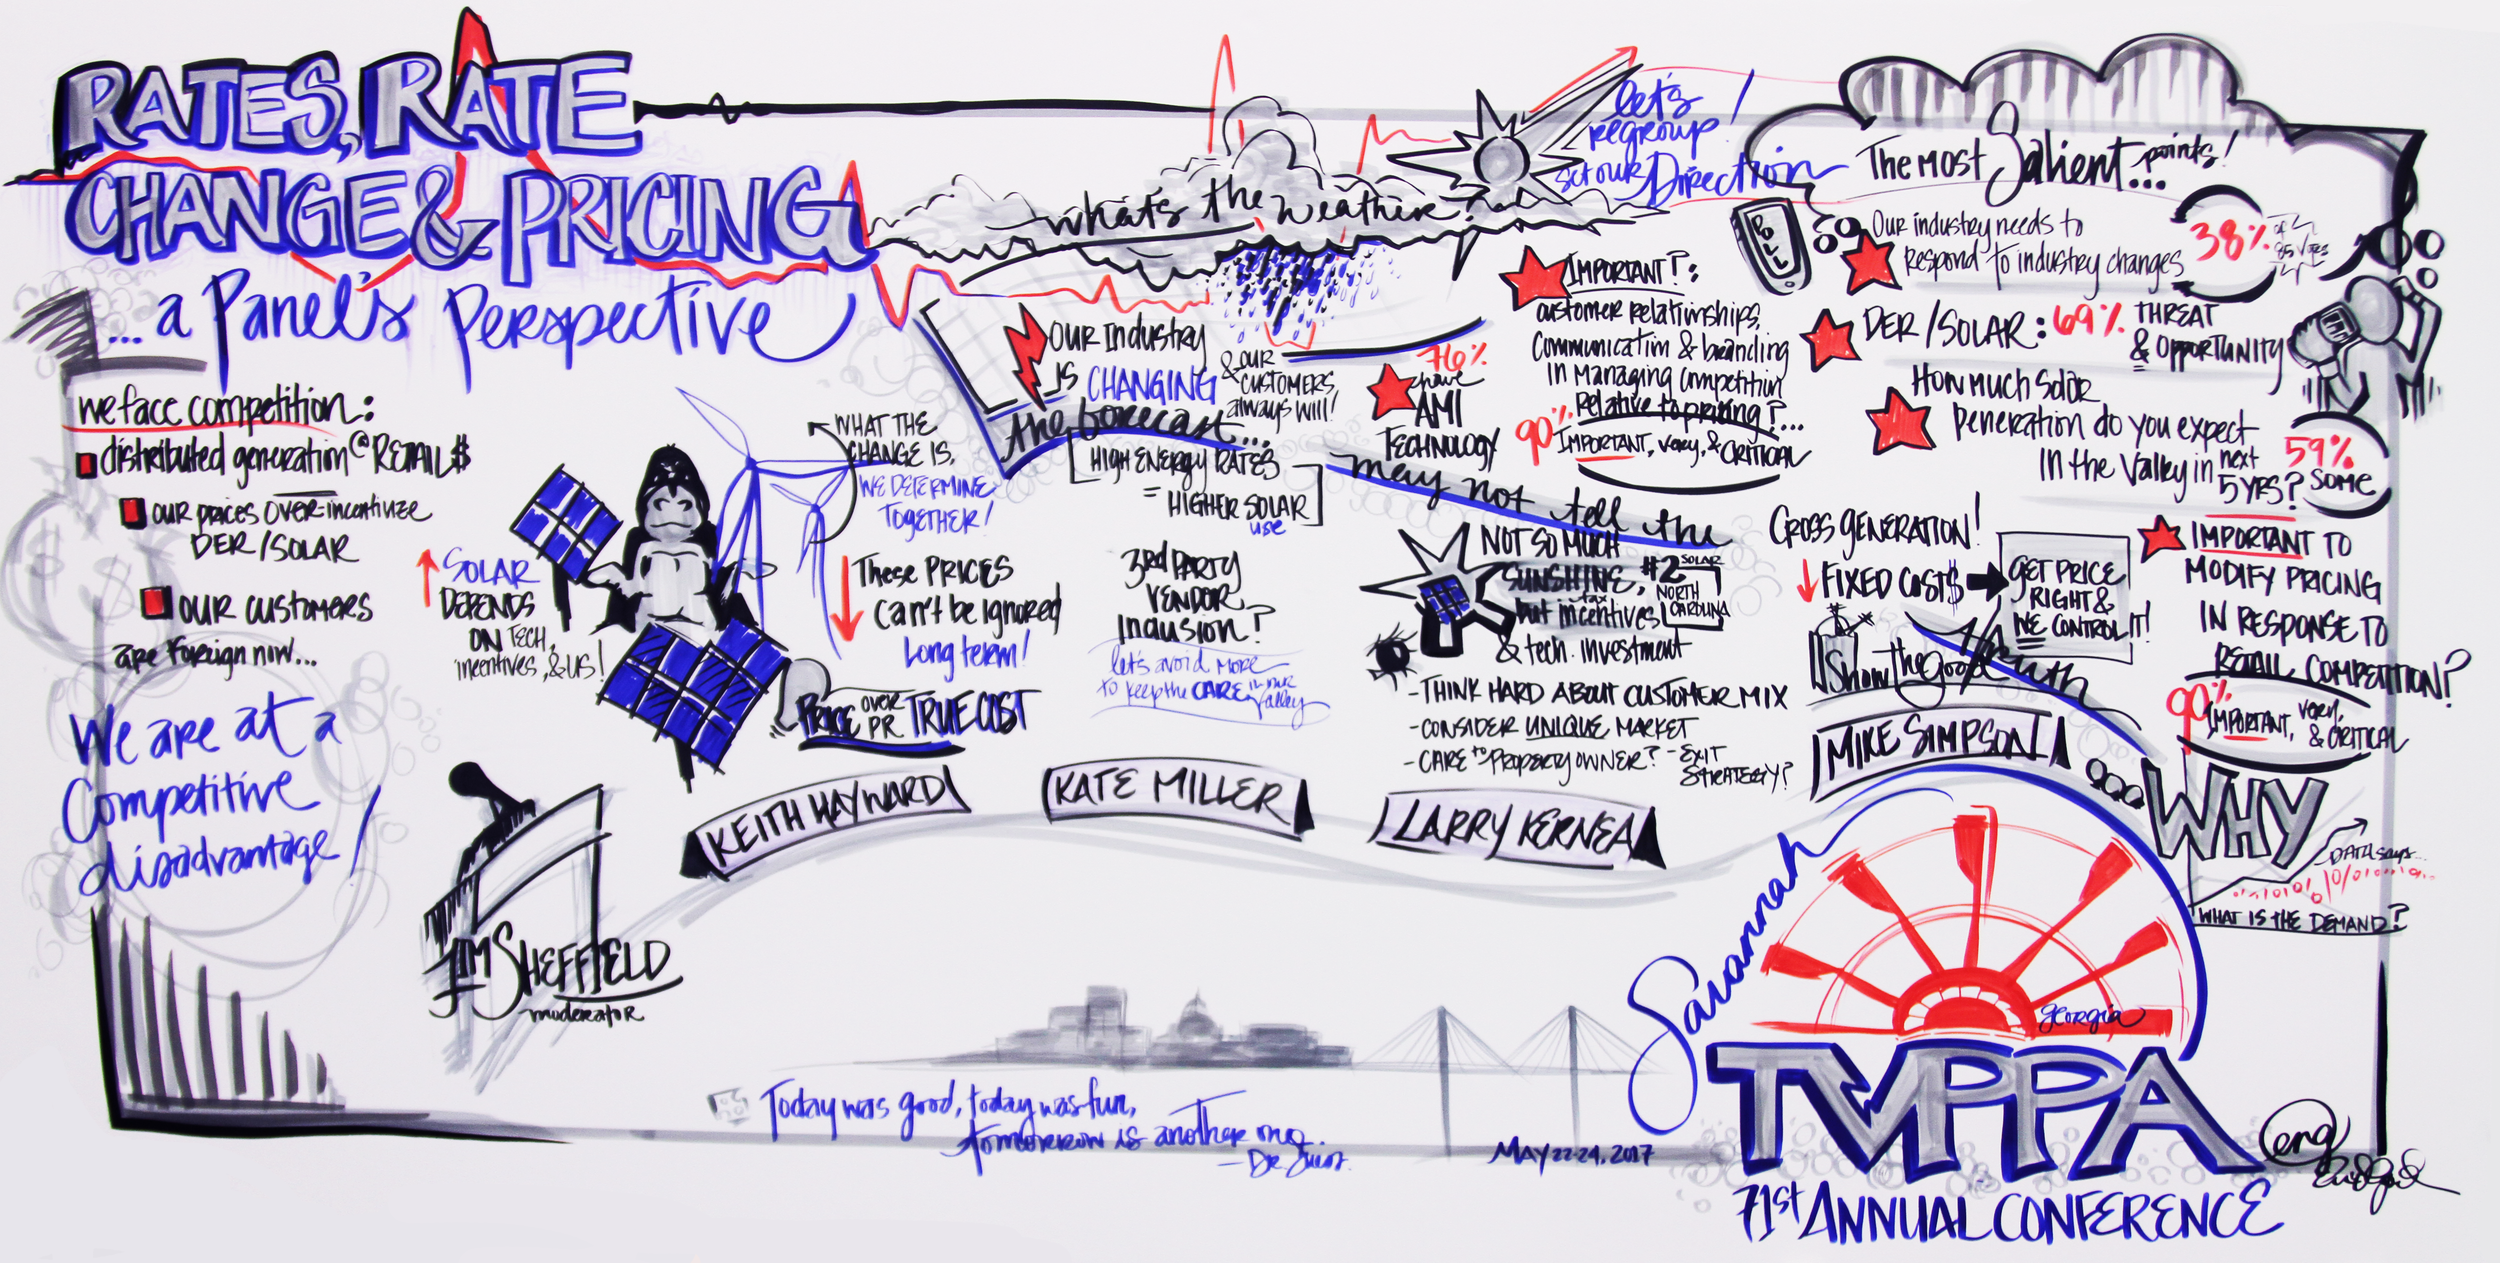 RATES, RATE
CHANGE & PRICING
... a Panel's Perspective
we face competition:
distributed generation @ RETAIL $
our prices over-incentivize
DER/SOLAR
our customers
are foreign now...
We are at a
Competitive
disadvantage!
SOLAR
DEPENDS
ON TECH,
incentives, & US!
WHAT THE
CHANGE IS,
WE DETERMINE
TOGETHER!
These PRICES
can't be ignored
Long term!
PRICE OVER PR TRUE COST
JIM SHEFFIELD
moderator
KEITH HAYWARD
what's the weather?
OUR Industry
IS CHANGING
& OUR
CUSTOMERS
always will!
the forecast...
HIGH ENERGY RATES
= HIGHER SOLAR
use
3rd PARTY
VENDOR
Inclusion?
let's avoid more
to keep the CARE in our
Valley
KATE MILLER
let's
regroup!
set our Direction
76%
have
AMI
TECHNOLOGY
IMPORTANT?:
customer relationships,
Communication & branding
in managing competition
Relative to pricing?...
90% IMPORTANT, very, & CRITICAL
may not tell the
Truth
NOT SO MUCH
SUNSHINE,
but tax incentives
& tech. investment
#2 SOLAR
NORTH
CAROLINA
- THINK HARD ABOUT CUSTOMER MIX
- CONSIDER UNIQUE MARKET
- CARE to PROPERTY OWNER? - EXIT
STRATEGY?
LARRY KERNEA
The Most Salient... points!
POLL
Our industry needs to
Respond to industry changes
38%
of
85 Votes
DER/SOLAR: 69% THREAT
& OPPORTUNITY
How much Solar
Generation do you expect
in the Valley in next
5 YRS?
59%
SOME
CROSS GENERATION!
FIXED COST$
GET PRICE
RIGHT &
WE CONTROL IT!
Show the good
MIKE SIMPSON
IMPORTANT TO
MODIFY PRICING
IN RESPONSE TO
RETAIL COMPETITION?
90%
IMPORTANT, very,
& CRITICAL
WHY
DATA says...
WHAT IS THE DEMAND?
Savannah
georgia
TVPPA
71st ANNUAL CONFERENCE
MAY 22-24, 2017
Today was good, today was fun,
tomorrow is another one.
- Dr. Seuss